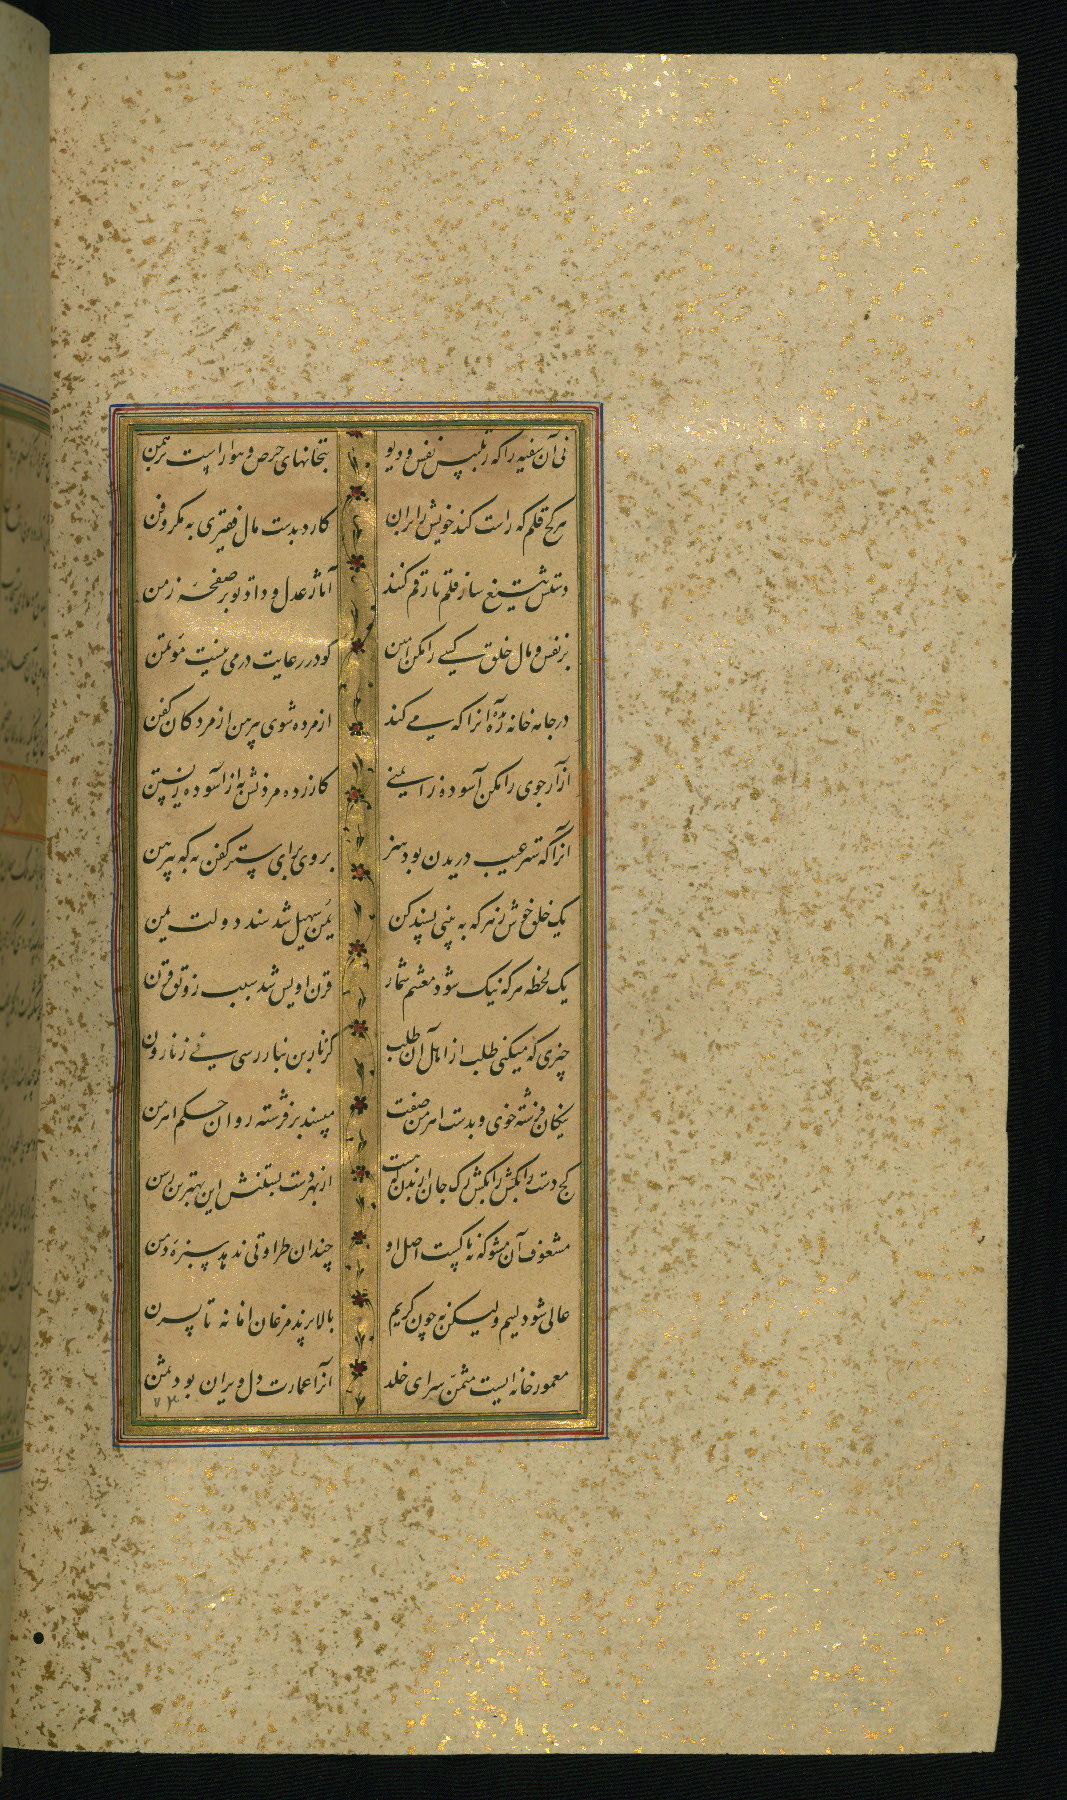 نی آن سفیه را که ز تلبیس نفس و دیو بتخانهای حرص و هوا راست برهمن
هر کج قلم که راست کند خویش را بر آن کارد بدست مال فقیری به مکر و فن
دستش به تیغ ساز قلم تا رقم کند آثار عدل و داد تو بر صفحهٔ زمن
بر نفس و مال خلق کسی را مکن امین کو در رعایت درمی نیست مؤتمن
در جامه خانه ره مده آنرا که می کند از مرده شوی پیرهن از مردگان کفن
آزار جوی را مکن آسوده ز ایمنی کازرده مردنش به از آسوده زیستن
آنرا که ستر عیب دریدن بود هنر بر وی برای ستر کفن به که پیرهن
یک خلق خوش ز هر که به بینی پسند کن یمن سهیل شد سند دولت یمن
یک لحظه هر که نیک شود مغتنم شمار قرن اویس شد سبب رونق قرن
چیزی که میکنی طلب از اهل آن طلب کز نار بن بنار رسی نی ز نارون
نیکان فرشته خوی و بدست اهرمن صفت مپسند بر فرشته روان حکم اهرمن
کج دست را بکش رک جان از بدن که هست از بهر دست بستنش این بهترین رسن
مشعوف آن مشو که نه پاکست اصل او چندان طراوتی ندهد سبزهٔ دمن
عالی شود لئیم ولیکن نه چون کریم بالا پرند مرغان اما نه تا پرن
معمور خانه ایست مثمن سرای خلد آنرا عمارت دل ویران بود ثمن
۷۳